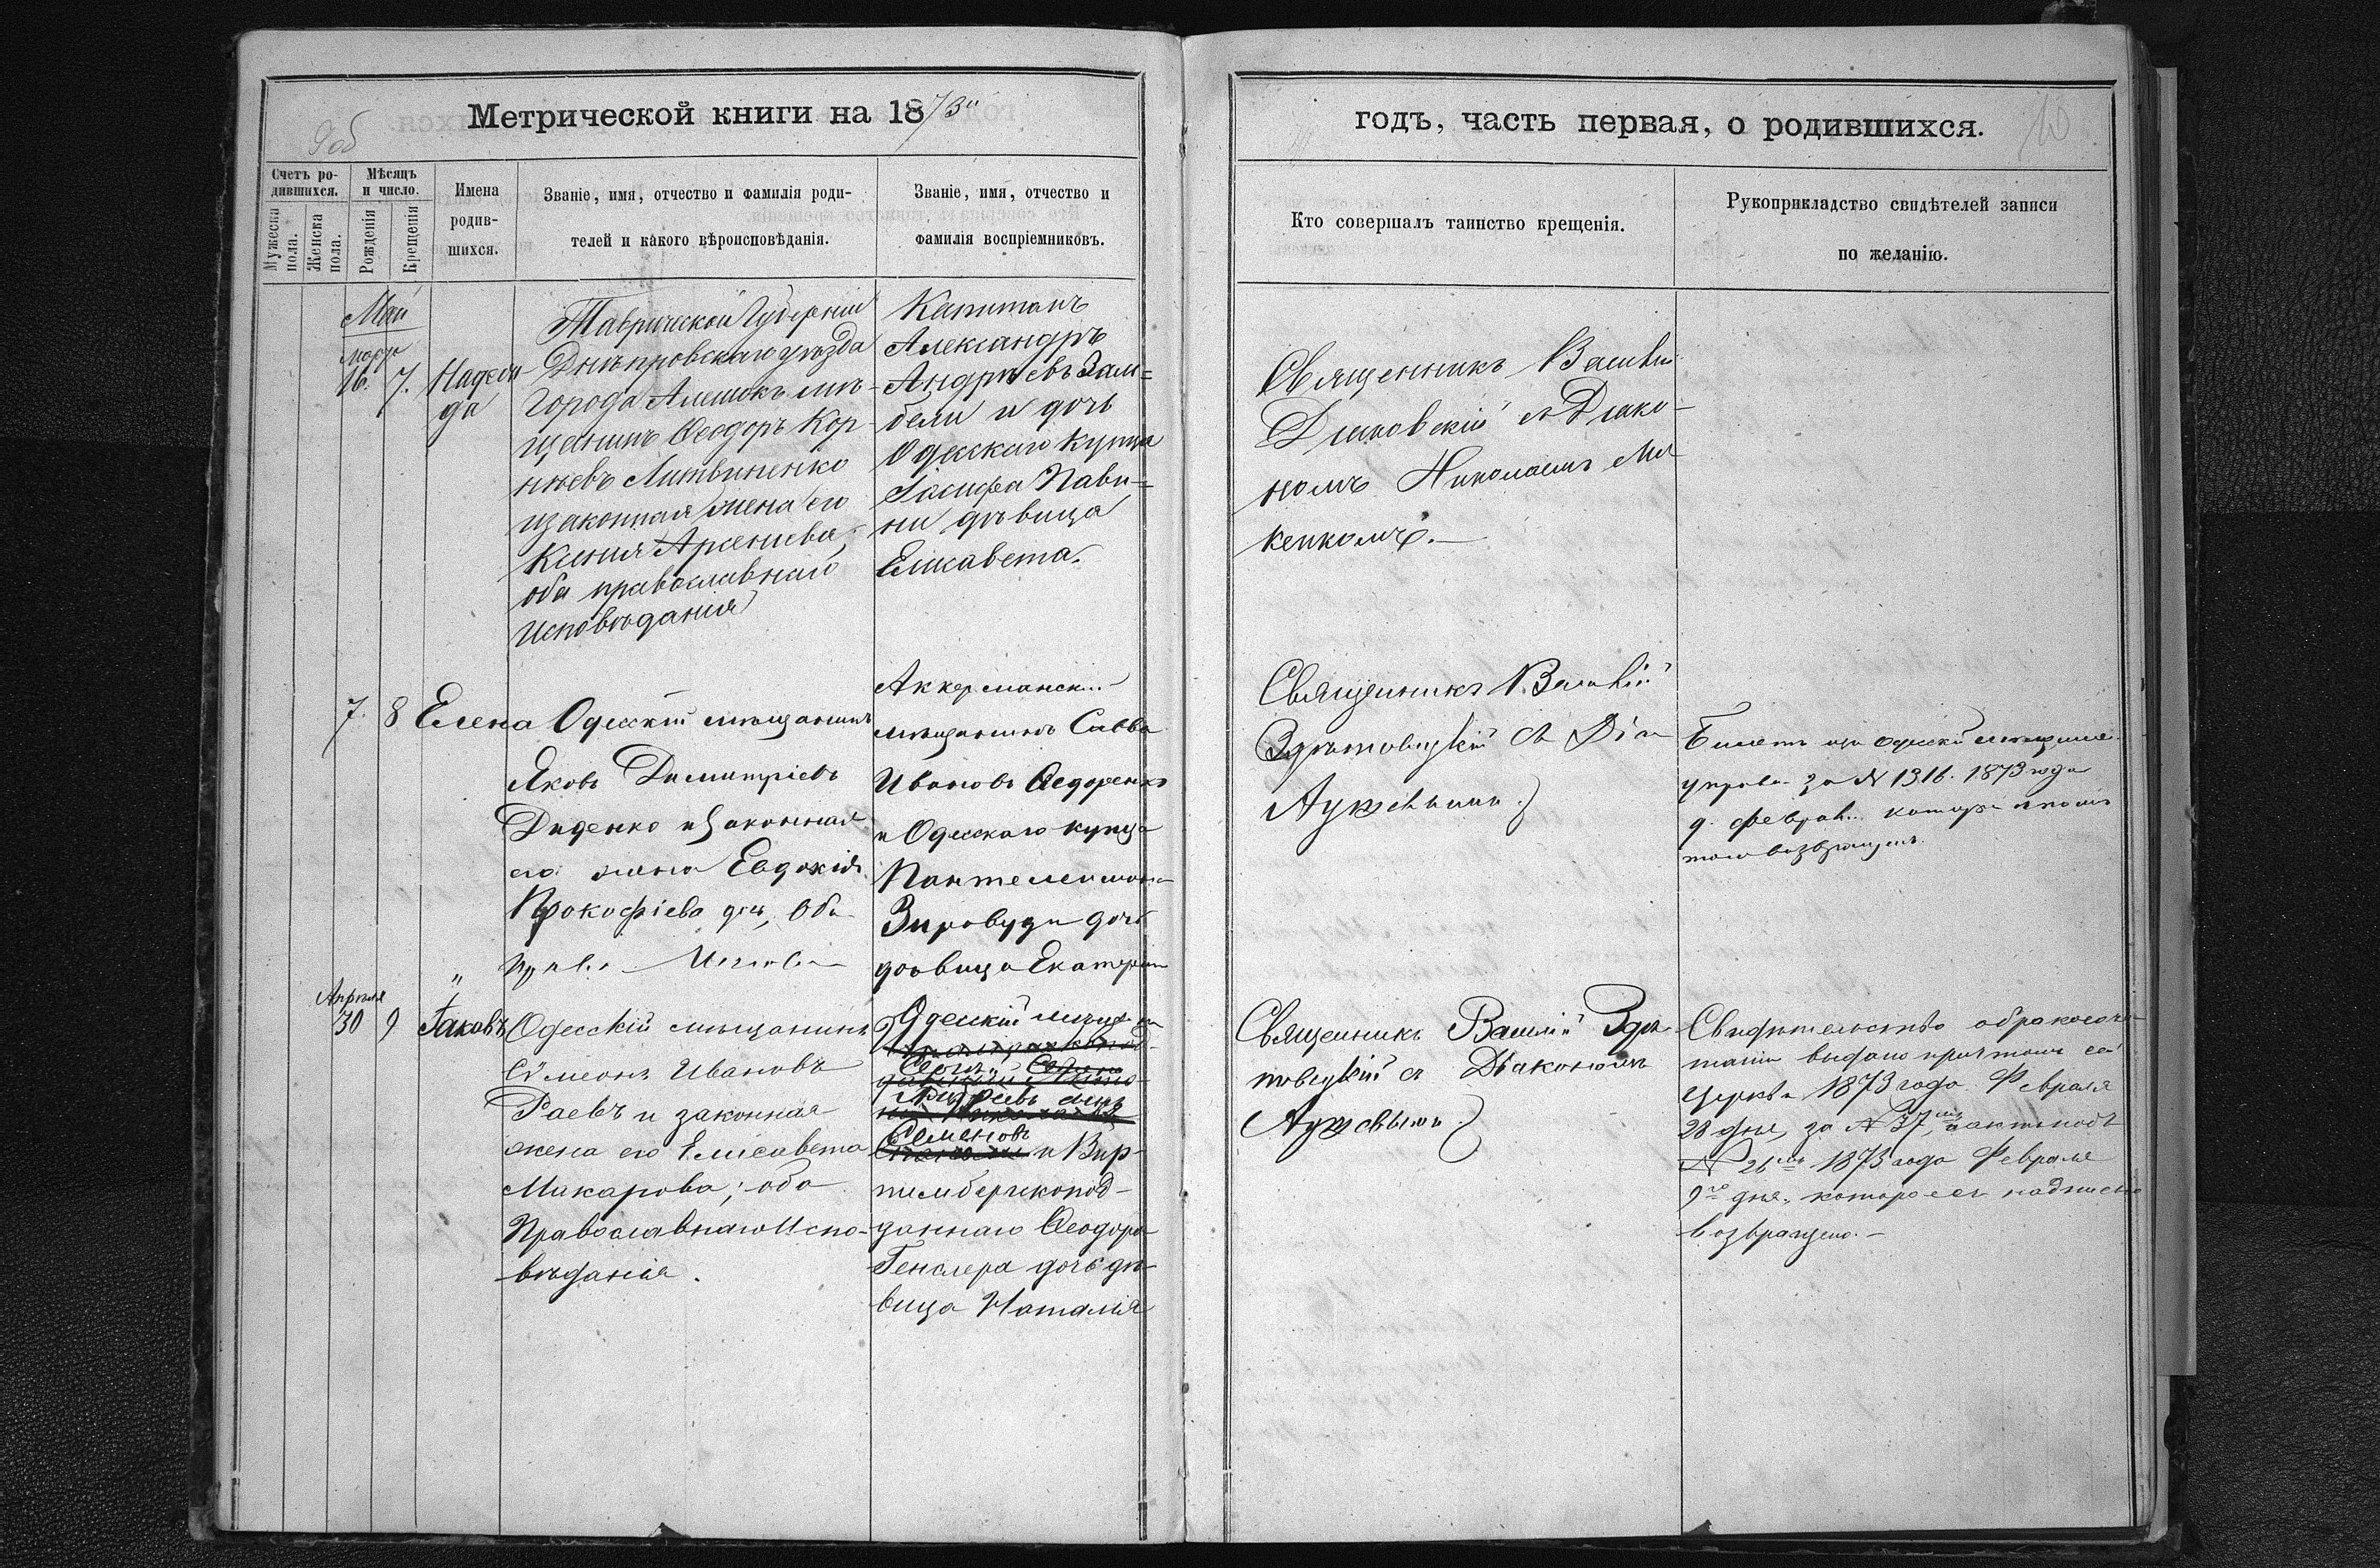 Метрической книги на 1873й
9об
Счетъ ро-
дившихся.
Мужеска
пола.
Женска
пола.
Мѣсяцъ
и число.
Рожденія
Крещенія
Имена
родив-
шихся.
Званіе, имя, отчество и фамилія роди-
телей и какого вѣроисповѣданія.
Званіе, имя, отчество и
фамилія воспріемниковъ.
годъ, часть первая, о родившихся.
10
Кто совершалъ таинство крещенія.
Рукоприкладство свидѣтелей записи
по желанію.
Май
16. 7.
Надеж
да
Таврической Губерніи
Днѣпровскаго уѣзда
Города Алешокъ мѣ-
щанинъ Ѳеодоръ Кор
нѣевъ Литвиненко
и законная жена его
Ксенія Арсеніева,
оба православнаго
Исповѣданія
Капитанъ
Александръ
Андрѣевъ Зам=
бели и дочь
Одесскаго купца
Іосифа Пави=
ни дѣвица
Елисавета.
Священникъ Василій
съ Діако-
номъ Николаемъ
7. 8 Елена
Одесскій мѣщанинъ
Яковъ Димитріевъ
Диденко и законная
его жена Евдокія
Прокофіева дочь, Оба
Аккерманскій
мѣщанинъ Савва
Ивановъ Ѳедоренко
и Одесскаго купца
Пантелеимона
дочь
дѣвица Екатерин
Священникъ Василій
съ Діа
Билетъ изъ Одесской
управы за № 1316. 1873 года
9. Феврал.
возвращенъ.
Апрѣля
30 9 Іаковъ
Одесскій мѣщанинъ
Сѵмеонъ Ивановъ
Раевъ и законная
жена его Елисавета
Макарова; оба
Православнаго Испо-
вѣданія.
Одесскій мѣщан
Семеновъ
и Вир-
тембергскопод-
даннаго Ѳеодора
Генслера дочь дѣ-
вица Наталія
Священникъ Василій Здѣ
товецкій съ Діакономъ
Свидѣтельство о бракосоче
таніи выдано причтомъ сей
Церкви 1873 года Февраля
28 дня, за № 37,
№ 26 1873 года Февраля
9го дня, которое съ надписью
возвращено.-